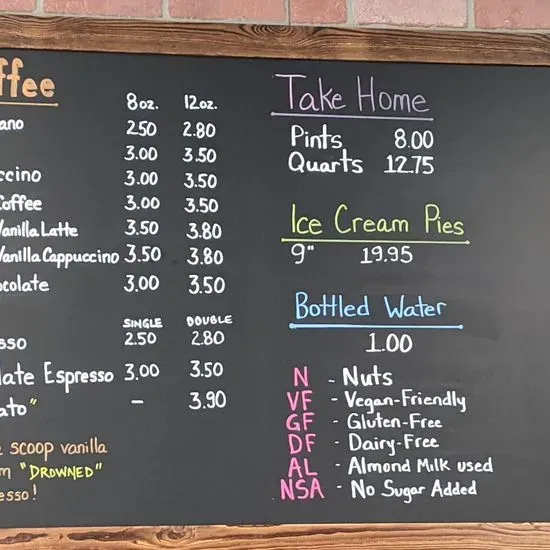 ffee
8oz. 12oz.
ano 2.50 2.80
3.00 3.50
ccino 3.00 3.50
Coffee 3.00 3.50
Vanilla Latte 3.50 3.80
Vanilla Cappuccino 3.50 3.80
ocolate 3.00 3.50
SINGLE DOUBLE
sso 2.50 2.80
late Espresso 3.00 3.50
ato" - 3.90
scoop vanilla
m "DROWNED"
esso!
Take Home
Pints 8.00
Quarts 12.75
Ice Cream Pies
9" 19.95
Bottled Water
1.00
N - Nuts
VF - Vegan-Friendly
GF - Gluten-Free
DF - Dairy-Free
AL - Almond Milk used
NSA - No Sugar Added